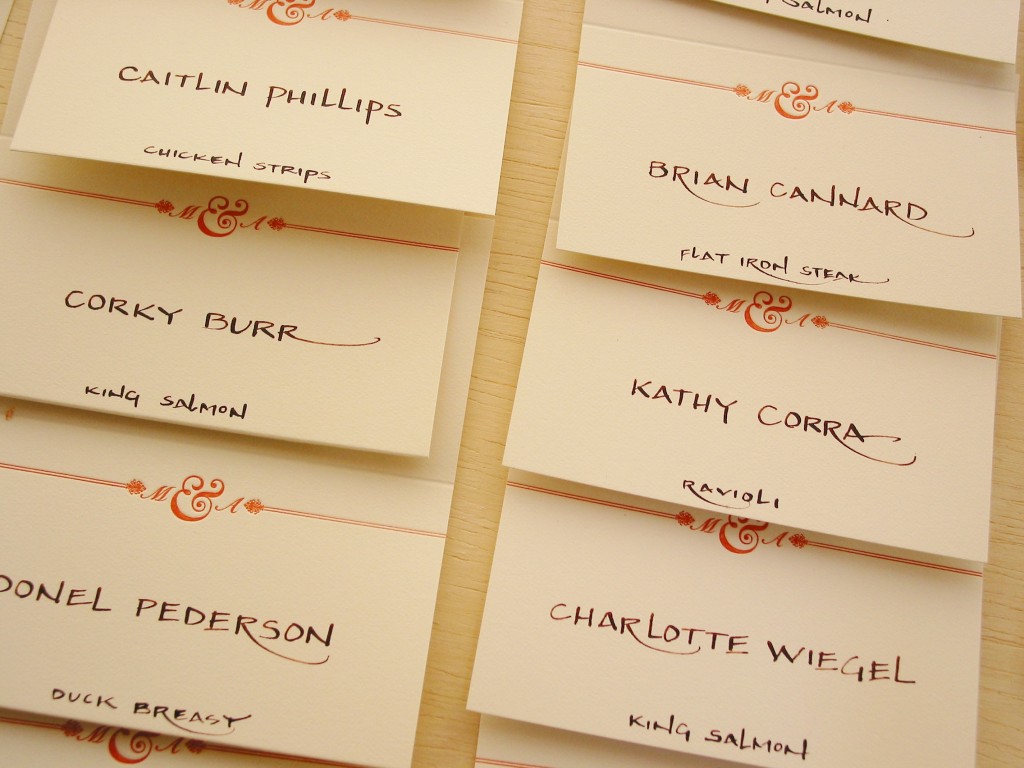 M & A
CAITLIN PHILLIPS
CHICKEN STRIPS
M & A
CORKY BURR
KING SALMON
M & A
DONEL PEDERSON
DUCK BREAST
M & A
SALMON
M & A
BRIAN CANNARD
FLAT IRON STEAK
M & A
KATHY CORRA
RAVIOLI
M & A
CHARLOTTE WIEGEL
KING SALMON